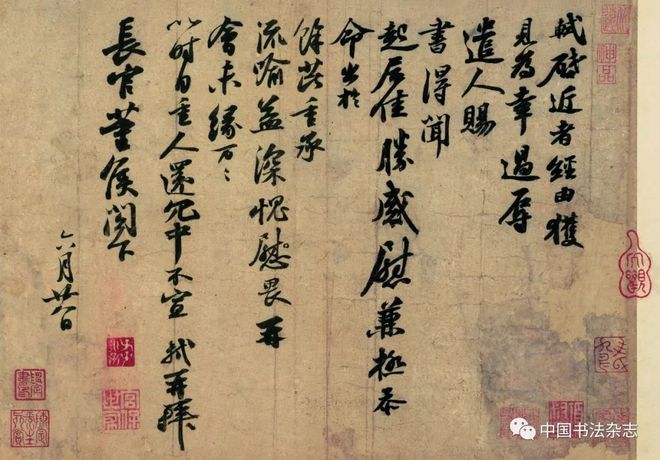 軾啓近者經由獲
見為幸過辱
遣人賜
書得聞
起居佳勝感慰兼極忝
命出於
餘芘重承
流喻益深愧慰畏再
會未緣万〻
以時自重人還冗中不宣 軾再拜
長官董侯閣下
六月廿八日
中国书法杂志